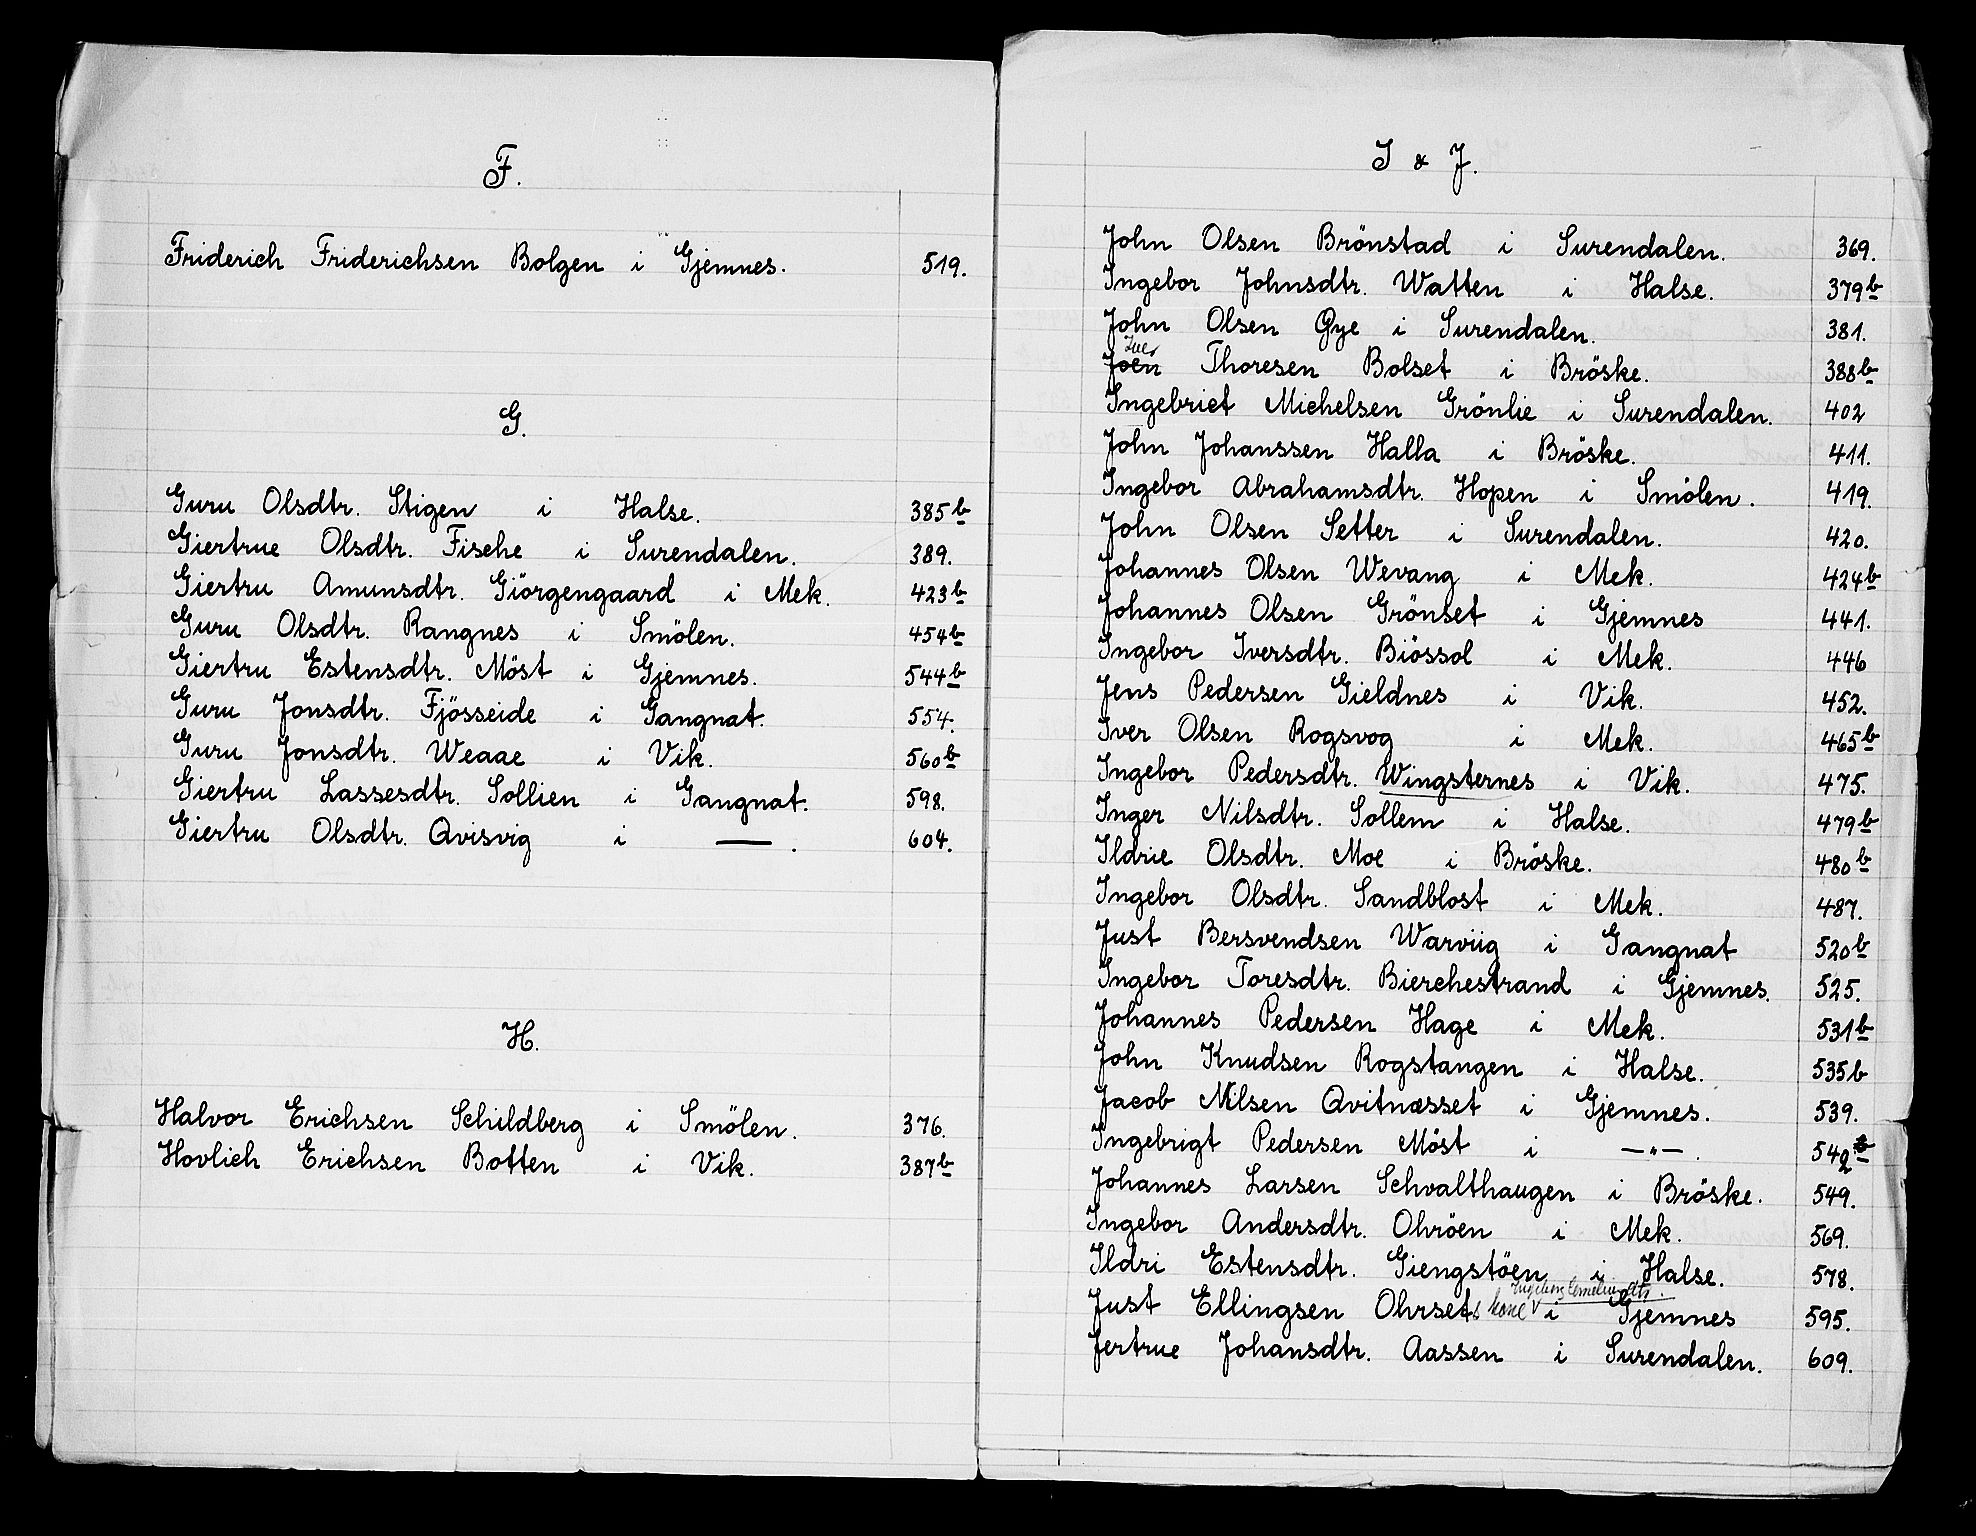 F.
Friderich Friderichsen Bolgen i Gjemnes. 519.
G.
Guru Olsdtr. Stigen i Halse. 385b
Giertrue Olsdtr. Fische i Surendalen. 389.
Giertru Amunsdtr. Giörgengaard i Mek. 423b
Guru Olsdtr. Rangnes i Smölen. 454b
Giertru Estensdtr. Möst i Gjemnes. 544b
Guru Jonsdtr. Fjösseide i Gangnat. 554.
Guru Jonsdtr. Weaae i Vik. 560b
Giertru Lassesdtr. Sollien i Gangnat. 598.
Giertru Olsdtr. Qvisvig i — . 604.
H.
Halvor Erichsen Schildberg i Smölen. 376.
Hovlich Erichsen Botten i Vik. 387b
I & J.
John Olsen Brönstad i Surendalen. 369.
Ingebor Johnsdtr. Watten i Halse. 379b
John Olsen Gye i Surendalen. 381.
Iver
Joen Thoresen Bolset i Bröske. 388b
Ingebriet Michelsen Grönlie i Surendalen. 402
John Johanssen Halla i Bröske. 411.
Ingebor Abrahamsdtr. Hopen i Smölen. 419.
John Olsen Setter i Surendalen. 420.
Johannes Olsen Wevang i Mek. 424b
Johannes Olsen Grönset i Gjemnes 441.
Ingebor Iversdtr. Biössol i Mek. 446
Jens Pedersen Gieldnes i Vik. 452.
Iver Olsen Rogsvog i Mek. 465b
Ingebor Pedersdtr. Wingsternes i Vik. 475.
Inger Nilsdtr. Sollem i Halse. 479b
Ildrie Olsdtr. Moe i Bröske. 480b
Ingebor Olsdtr. Sandblost i Mek. 487.
Just Bersvendsen Warviig i Gangnat 520b
Ingebor Toresdtr. Bierchestrand i Gjemnes. 525.
Johannes Pedersen Hage i Mek. 531b
John Knudsen Rogstangen i Halse. 535b
Jacob Nilsen Qvitnæsset i Gjemnes. 539.
Ingebrigt Pedersen Möst i —"—. 542
Johannes Larsen Schvalthaugen i Bröske. 549.
Ingebor Andersdtr. Ohröen i Mek. 569.
Ildri Estensdtr. Giengstöen i Halse. 578.
Just Ellingsen Ohrsets kone i Gjemnes 595.
Jertrue Johansdtr. Aassen i Surendalen. 609.